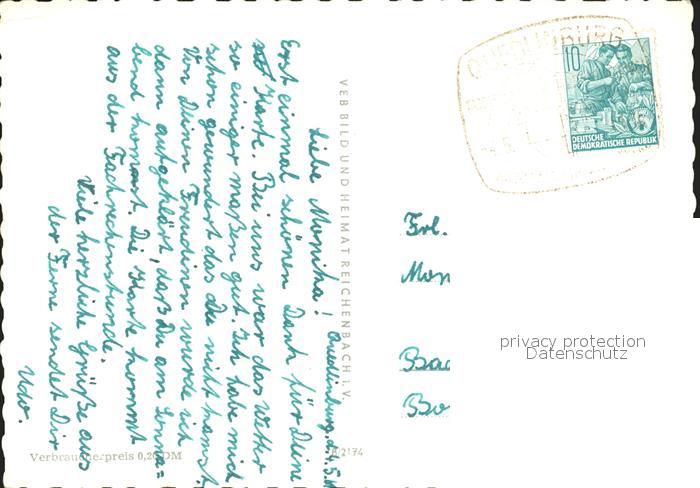 Quedlinburg, d. 4.5.
Liebe Monika!
Erst einmal schönen Dank für Deine
Karte. Bei uns war das Wetter
so einiger maßen gut. Ich habe mich
schon gewundert das Du nicht kamst
Von Deinen Freudinen wurde ich
dann aufgeklärt, daß Du am Sonna=
bend komst. Die Karte kommt
aus der Fachrechenstunde.
Viele herzliche Grüße aus
der Ferne sendet Dir
Udo.
VEB BILD UND HEIMAT REICHENBACH I. V.
Verbraucherpreis 0,20 DM
QUEDLINBURG
10
5
DEUTSCHE
DEMOKRATISCHE REPUBLIK
Frl.
Mon
Bad
Bo
privacy protection
Datenschutz